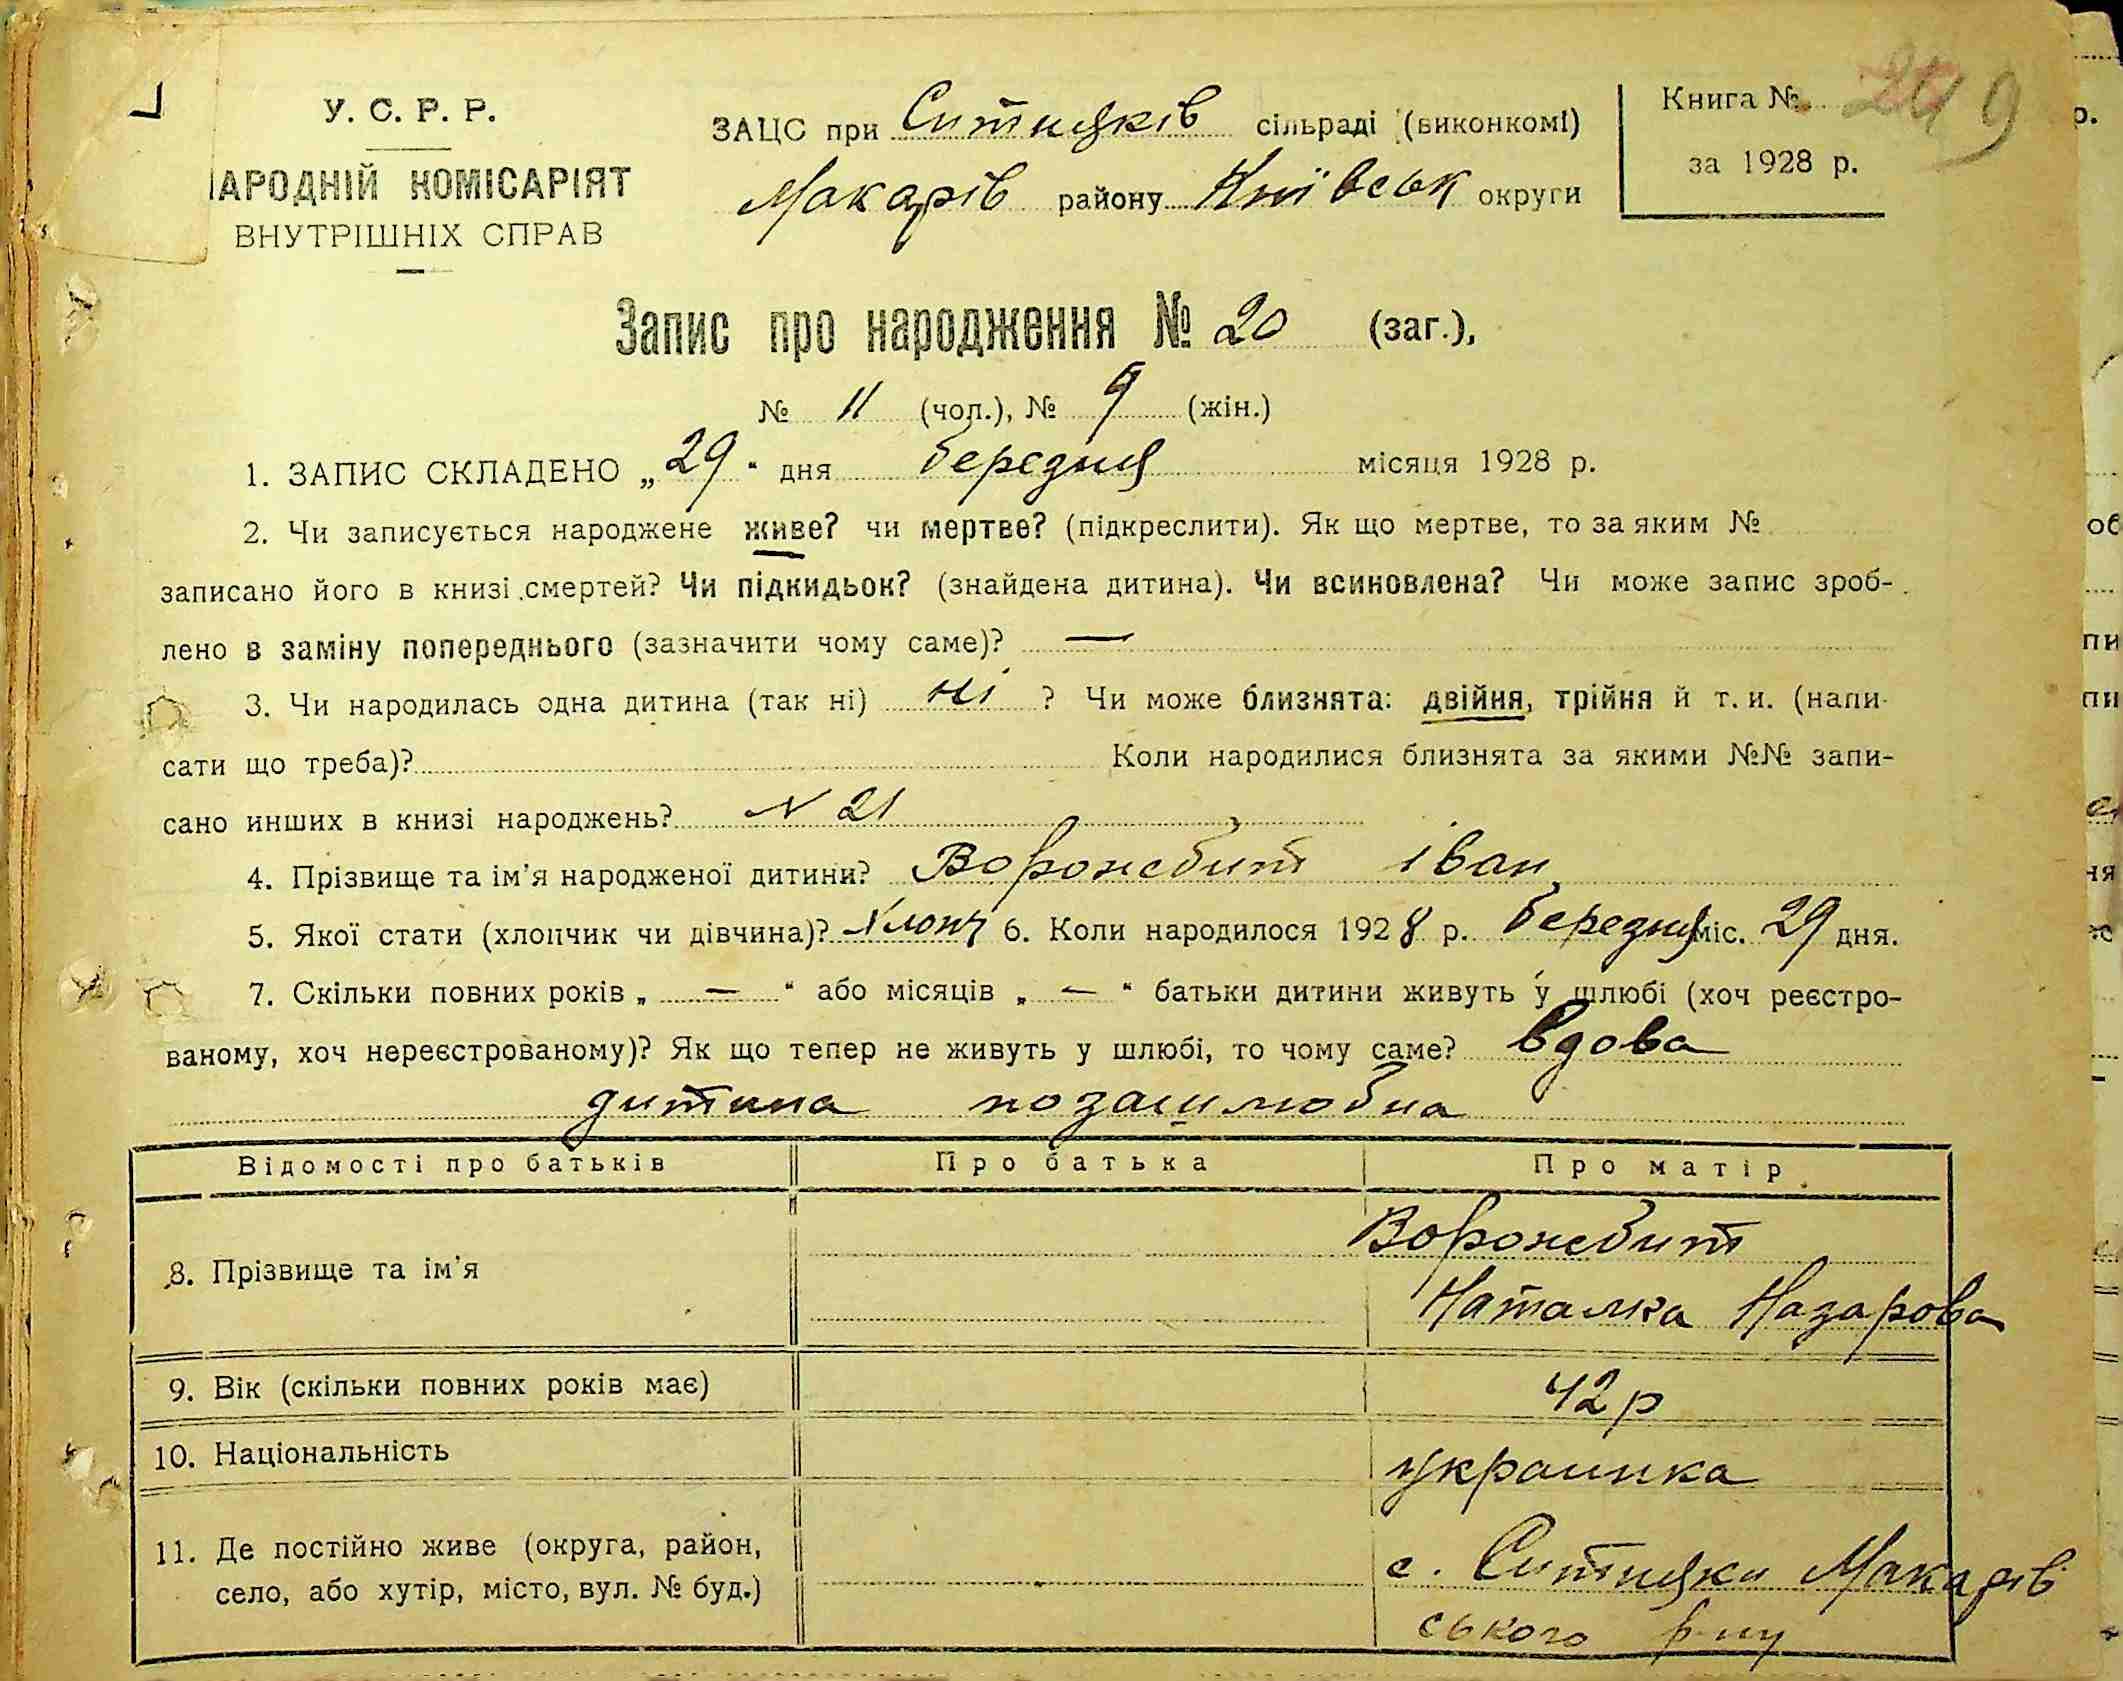 У. С. Р. Р.
АРОДНІЙ КОМІСАРІЯТ
ВНУТРІШНІХ СПРАВ
ЗАЦС при Ситняків сільраді (виконкомі)
Макарів району Київськ округи
Книга № 249
за 1928 р.
Запис про народження № 20 (заг.),
№ 11 (чол.), № 9 (жін.)
1. ЗАПИС СКЛАДЕНО „29“ дня березня місяця 1928 р.
2. Чи записується народжене живе? чи мертве? (підкреслити). Як що мертве, то за яким №
записано його в книзі смертей? Чи підкидьок? (знайдена дитина). Чи всиновлена? Чи може запис зроб-
лено в заміну попереднього (зазначити чому саме)? —
3. Чи народилась одна дитина (так ні) ні ? Чи може близнята: двійня, трійня й т. и. (напи-
сати що треба)? Коли народилися близнята за якими №№ запи-
сано инших в книзі народжень? N 21
4. Прізвище та ім'я народженої дитини? Воронебит Іван
5. Якої стати (хлопчик чи дівчина)? Хлопч 6. Коли народилося 1928 р. березня міс. 29 дня.
7. Скільки повних років „ — “ або місяців „ — “ батьки дитини живуть у шлюбі (хоч реєстро-
ваному, хоч нереєстрованому)? Як що тепер не живуть у шлюбі, то чому саме? вдова
дитина позашлюбна
Відомості про батьків Про батька Про матір
8. Прізвище та ім'я Воронебит
Наталка Назарова
9. Вік (скільки повних років має) 42 р
10. Національність украинка
11. Де постійно живе (округа, район,
село, або хутір, місто, вул. № буд.)
с. Ситняки Макарів
ського р-ну